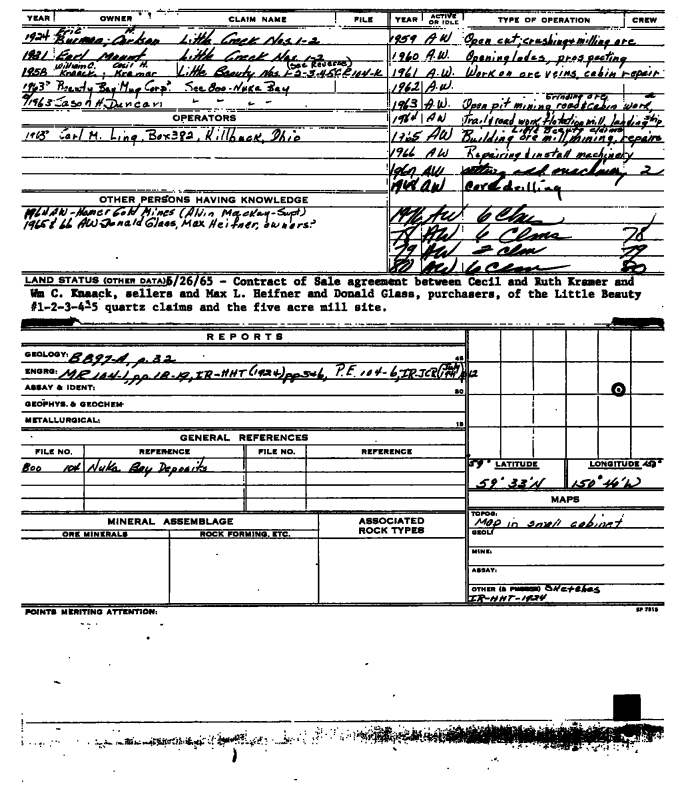 YEAR OWNER CLAIM NAME FILE YEAR ACTIVE OR IDLE TYPE OF OPERATION CREW
1924 Eric Burman; H. Carlson Little Creek Nos. 1-2
1931 Earl Mount Little Creek Nos. 1-2
1958 William C. Knaack; Cecil H. Kramer Little Beauty Nos. 1-2-3-4-5 (See Reverse) P.E. 104-K
1963 Beauty Bay Mng Corp. See Boo-Nuka Bay
1963 Jason H. Duncan " " "
OPERATORS
1965 Carl M. Ling, Box 392, Killbuck, Ohio
OTHER PERSONS HAVING KNOWLEDGE
1964 AW-Homer Gold Mines (Alvin Mackay-Supt)
1965 & 66 AW-Donald Glass, Max Heifner, owners?
1959 AW Open cut; crashing & milling ore
1960 A.W. Opening lodes, prospecting
1961 A.W. Work on ore veins, cabin repair
1962 A.W. Grinding ore
1963 A.W. Open pit mining road & cabin work,
1964 AW Trail road work, flotation mill, landing strip
1965 AW Little Beauty claims Building ore mill, mining, repairs
1966 AW Repairing & install machinery
1967 AW machinery 2
1968 AW core drilling
1976 AW 6 Clms
78 AW 6 Clms 78
79 AW 2 Clm 79
80 AW 6 Clm 80
LAND STATUS (OTHER DATA) 5/26/65 - Contract of Sale agreement between Cecil and Ruth Kramer and
Wm C. Knaack, sellers and Max L. Heifner and Donald Glass, purchasers, of the Little Beauty
#1-2-3-4-5 quartz claims and the five acre mill site.
REPORTS
GEOLOGY: B 897-A, p. 32
ENGRG: MR 104-1, pp. 18-19, IR-HHT (1924) pp 5+6, P.E. 104-6, IR-JCR (July 1941) p 12
ASSAY & IDENT:
GEOPHYS. & GEOCHEM
METALLURGICAL:
45
30
15
GENERAL REFERENCES
FILE NO. REFERENCE FILE NO. REFERENCE
Boo 104 Nuka Bay Deposits
59° LATITUDE LONGITUDE 150°
59° 33'N 150° 46'W
MAPS
TOPOG: Map in small cabinet
GEOL:
MINE:
ASSAY:
OTHER Sketches
IR-HHT-1924
MINERAL ASSEMBLAGE
ORE MINERALS ROCK FORMING, ETC.
ASSOCIATED ROCK TYPES
POINTS MERITING ATTENTION:
SP 7815